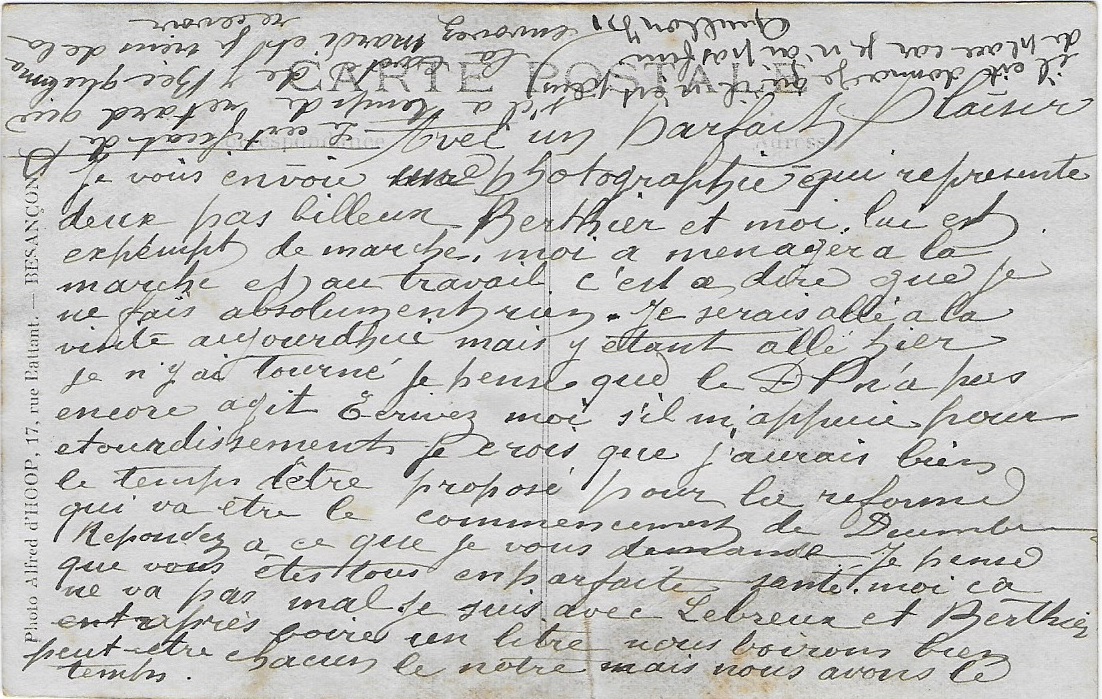 CARTE POSTALE
Correspondance
Adresse
Avec un parfait Plaisir
Je vous envoie une Photographie qui represente
deux pas billeux Berthier et moi, lui est
expémpt de marche, moi a menager a la
marche et au travail c'est a dire que je
ne fais absolument rien. Je serais allé a la
visite aujourdhui mais y étant allé hier
je n'y ai tourné je pense que le D P n'a pas
encore agit Ecrivez moi s'il m'appuie pour
etourdissement je crois que j'aurais bien
le temps d'être proposé pour la reforme
qui va être le commencement de Decembre
Repondez a ce que je vous demande. Je pense
que vous êtes tous en parfaite santé, moi ca
ne va pas mal. Je suis avec Lebreux et Berthier
entrain boire un litre nous boirons bien
peut-etre chacun le notre mais nous avons le
temps.
le certificat de
s'il a temps de retard que
la carte de
envoyez mardi et je viens de la
recevoir
il est dommage qu'il n'est plus
de place car je n'ai pas fini
Photo Alfred d'HOOP, 17, rue Battant. — BESANÇON